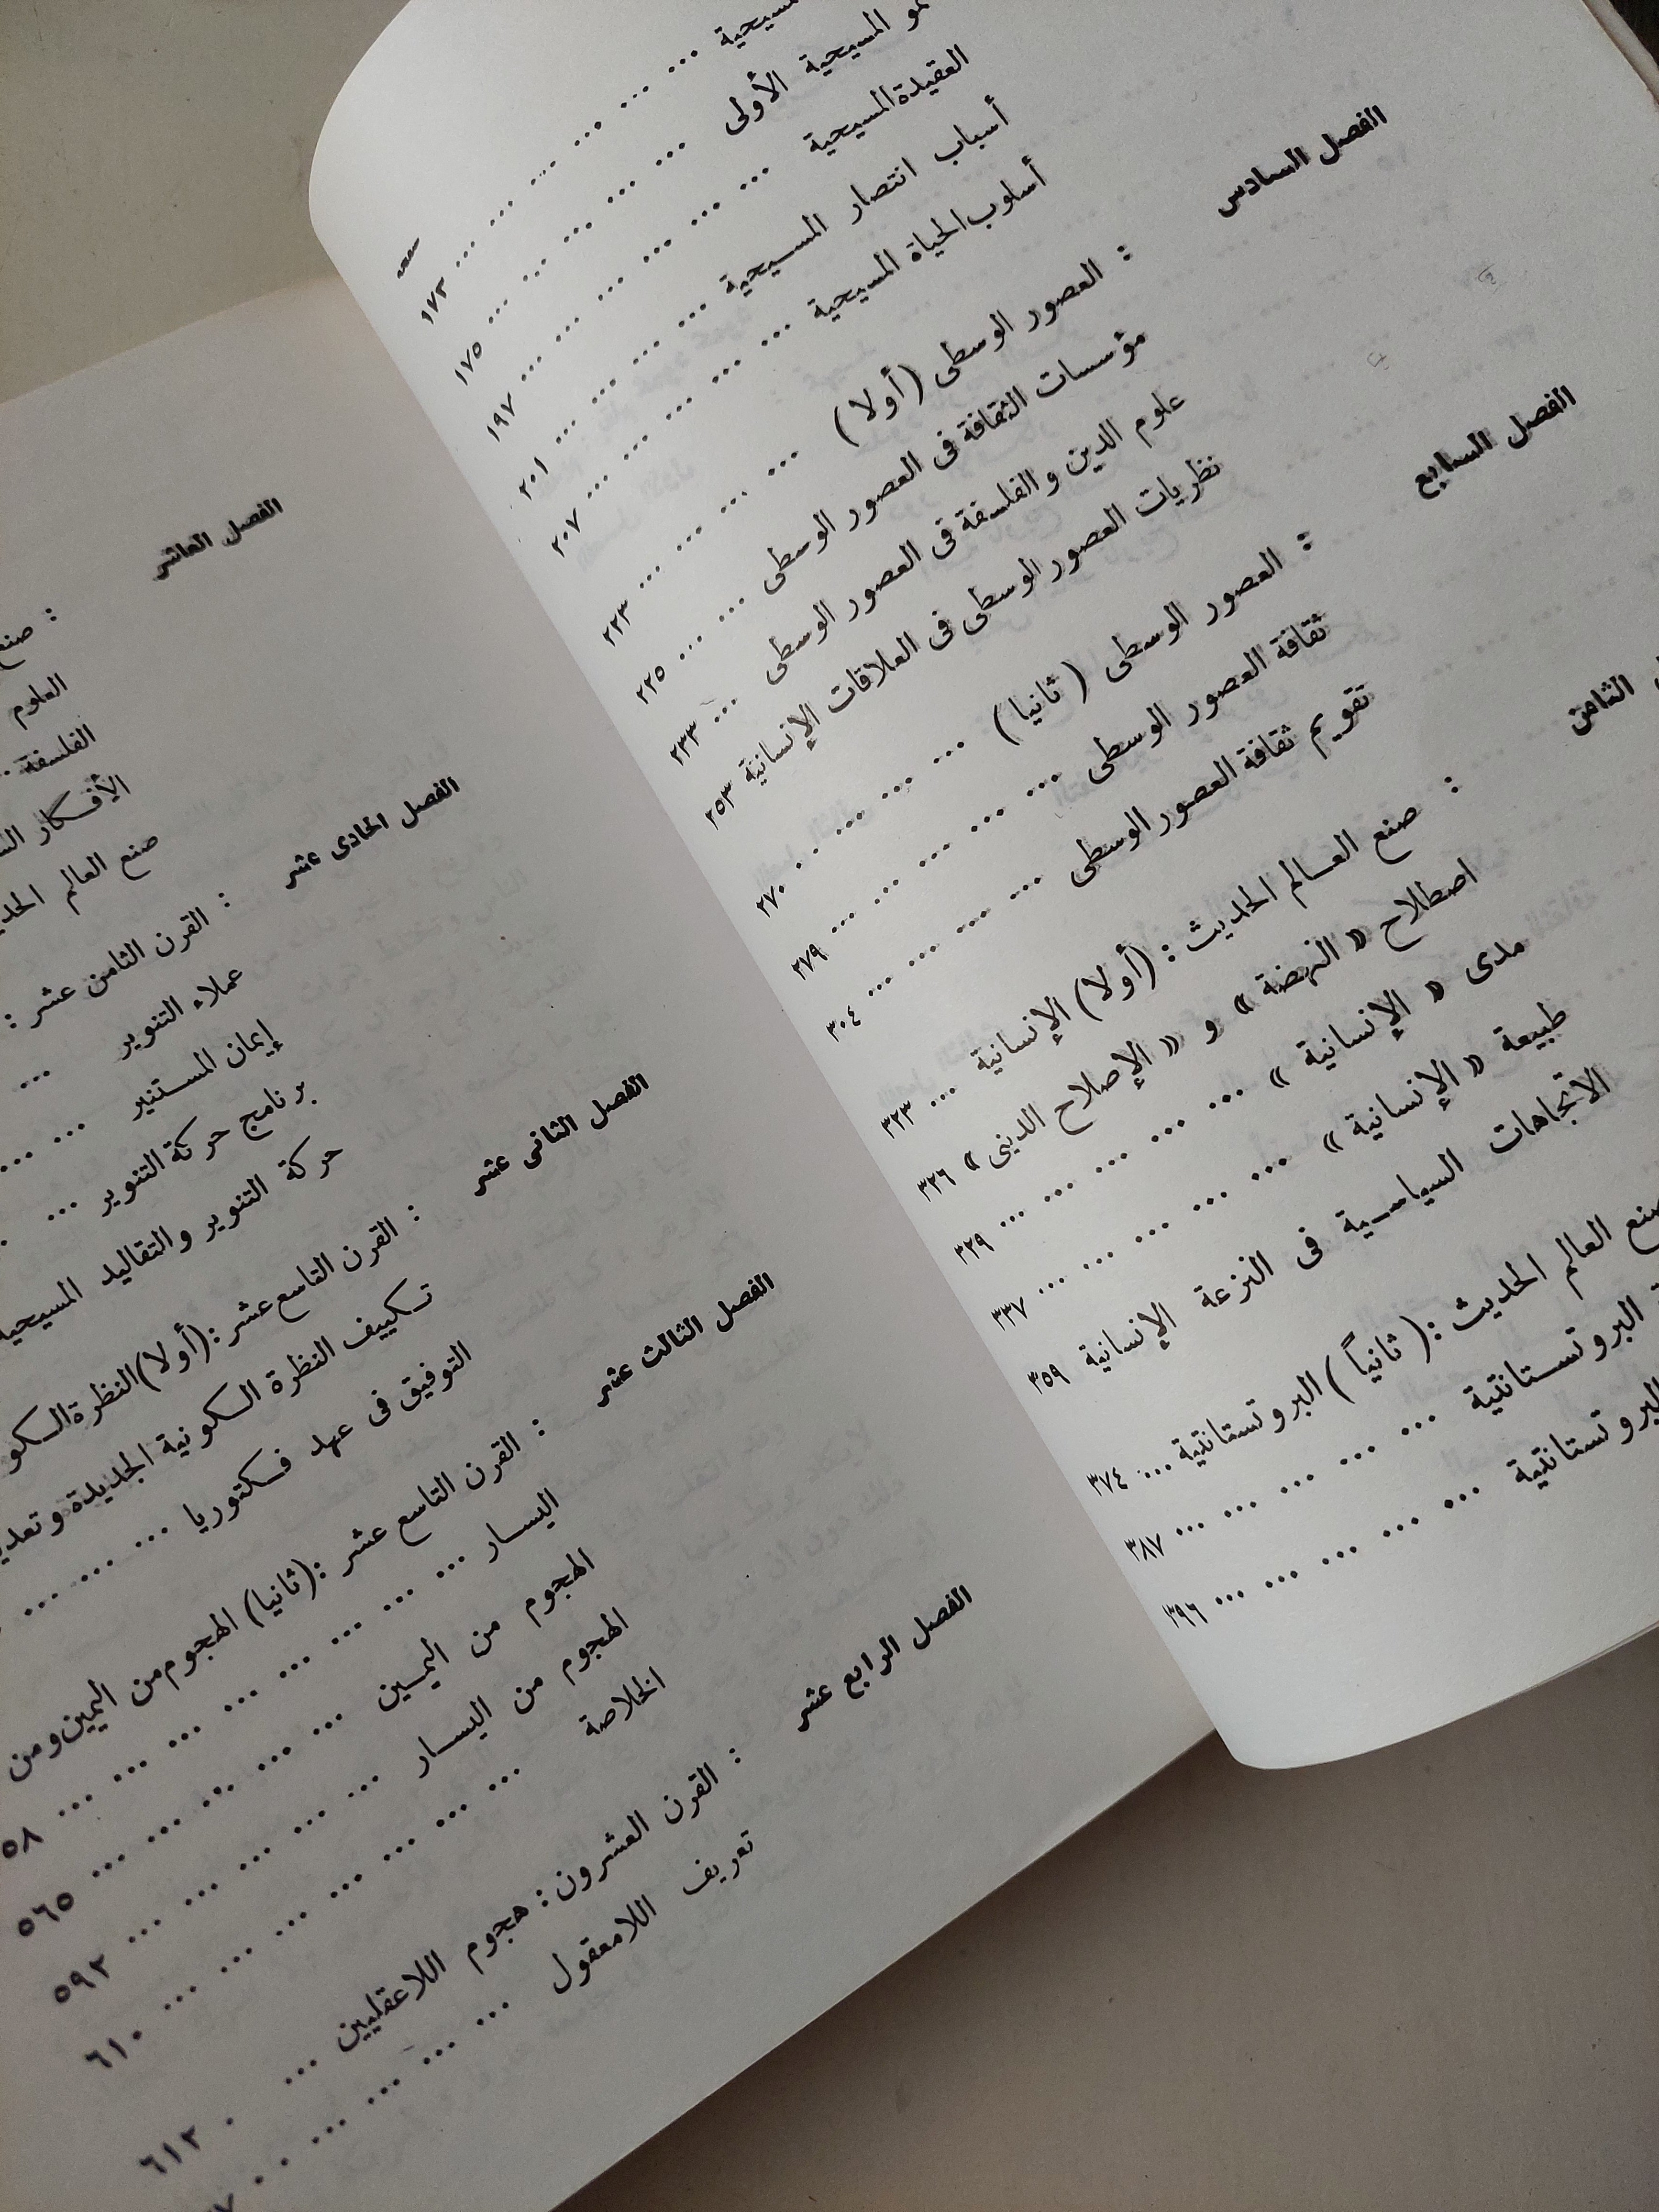 المسيحية ... ... ... ... ... ... ١٧٢
نمو المسيحية الأولى ... ... ... ... ... ١٧٥
العقيدة المسيحية ... ... ... ... ... ... ١٩٧
أسباب انتصار المسيحية ... ... ... ... ٢٠١
أسلوب الحياة المسيحية ... ... ... ... ... ٢٠٧
الفصل السادس : العصور الوسطى (أولا) ... ... ... ... ٢٢٣
مؤسسات الثقافة فى العصور الوسطى ... ... ٢٢٥
علوم الدين والفلسفة فى العصور الوسطى ... ٢٣٣
نظريات العصور الوسطى فى العلاقات الإنسانية ٢٥٣
الفصل السابع : العصور الوسطى (ثانيا) ... ... ... . . ٢٧٠
ثقافة العصور الوسطى ... ... ... ... ... ٢٧٩
تقويم ثقافة العصور الوسطى ... ... ... ... ٣٠٤
الثامن : صنع العالم الحديث : (أولا) الإنسانية ... ٣٢٣
اصطلاح « النهضة » و « الإصلاح الدينى » ٣٢٦
مدى « الإنسانية » ... ... ... ... ... ٣٢٩
طبيعة « الإنسانية » ... ... ... ... ... ٣٣٧
الاتجاهات السياسية فى النزعة الإنسانية ٣٥٩
صنع العالم الحديث : (ثانياً) البروتستانتية ... ٣٧٤
البروتستانتية ... ... ... ... ... ٣٨٧
البروتستانتية ... ... ... ... ... ... ٣٩٦
الفصل العاشر : صنع
العلوم
الفلسفة
الأفكار
صنع العالم
الفصل الحادى عشر : القرن الثامن عشر :
عملاء التنوير ...
إيمان المستنير ... ...
برنامج حركة التنوير ...
حركة التنوير والتقاليد المسيحية
الفصل الثانى عشر : القرن التاسع عشر : (أولا) النظرة
تكييف النظرة الكونية الجديدة
التوفيق فى عهد فكتوريا ... ... ...
الفصل الثالث عشر : القرن التاسع عشر : (ثانيا) الهجوم من اليمين ومن
اليسار ... ... ... ... ... ... ... ... ٥٨
الهجوم من اليمين ... ... ... ... ... ٥٦٥
الهجوم من اليسار ... ... ... ... ... ٥٩٢
الخلاصة ... ... ... ... ... ... ... ٦١٠
الفصل الرابع عشر : القرن العشرون : هجوم اللاعقليين ... . ٦١٢
تعريف اللامعقول ... ... ... ... . .